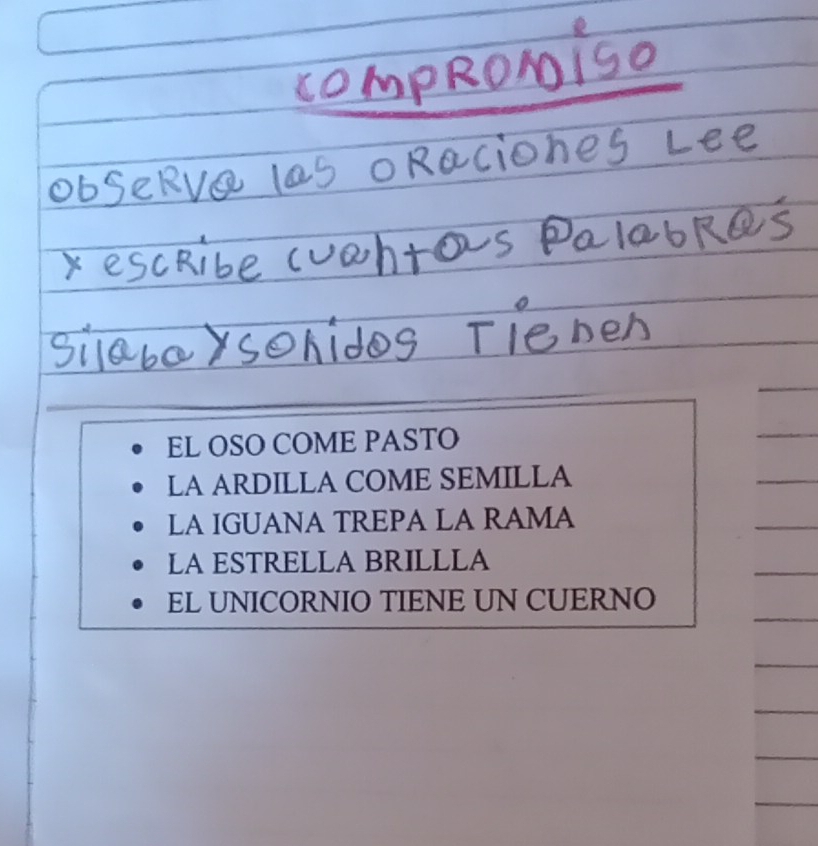 COMPROMISO
Observa las oraciones Lee
y escribe cuantas Palabras
Silaba y sonidos Tienen
• EL OSO COME PASTO
• LA ARDILLA COME SEMILLA
• LA IGUANA TREPA LA RAMA
• LA ESTRELLA BRILLLA
• EL UNICORNIO TIENE UN CUERNO